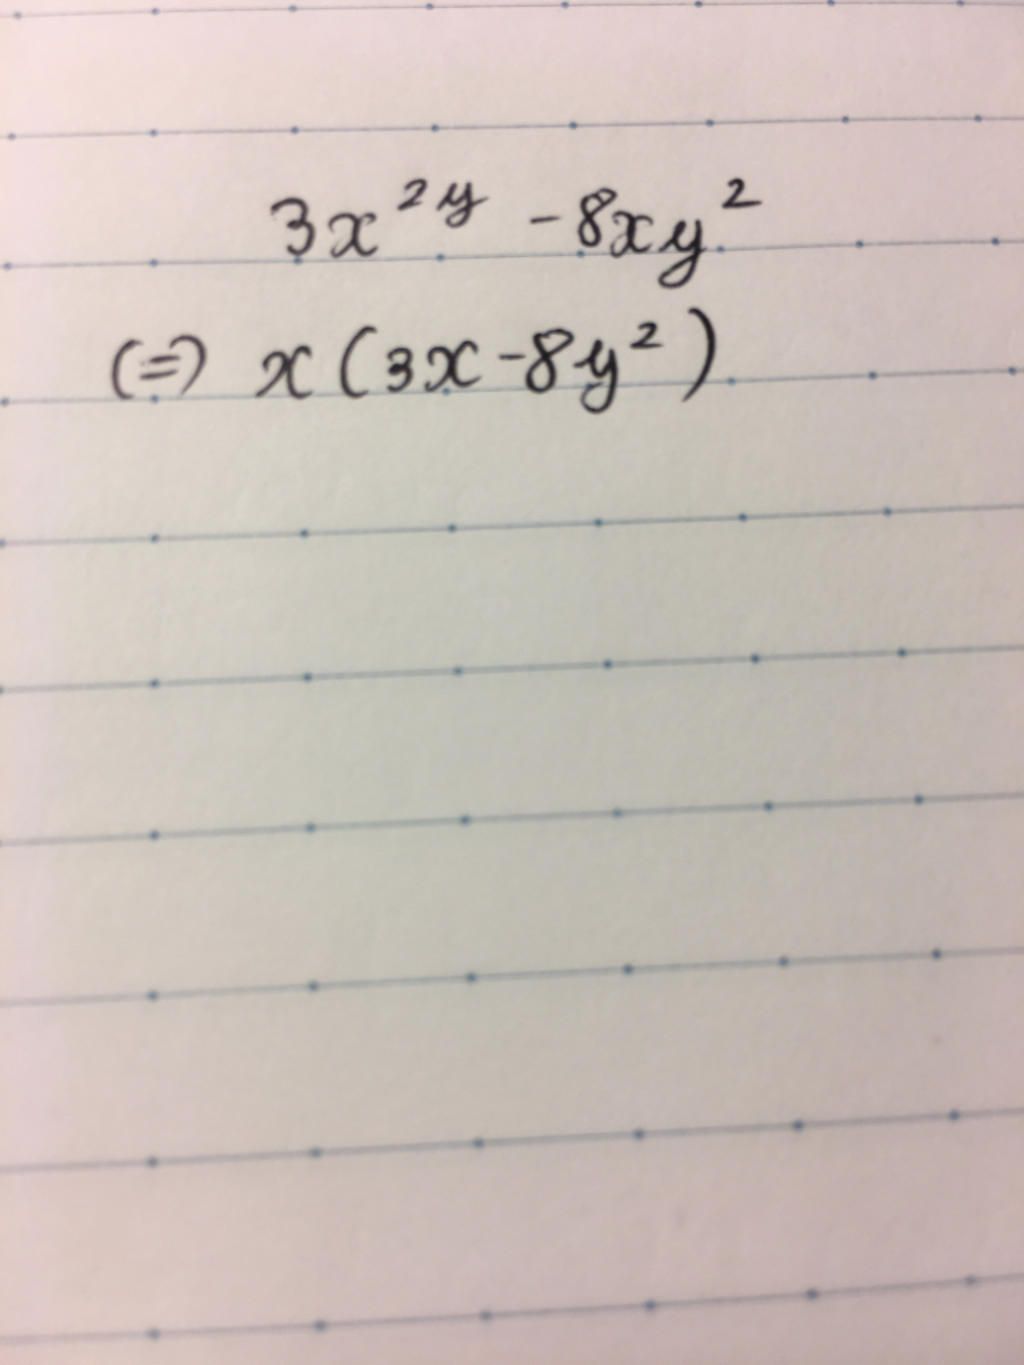 3x²ʸ - 8xy²
(=) x(3x - 8y²)